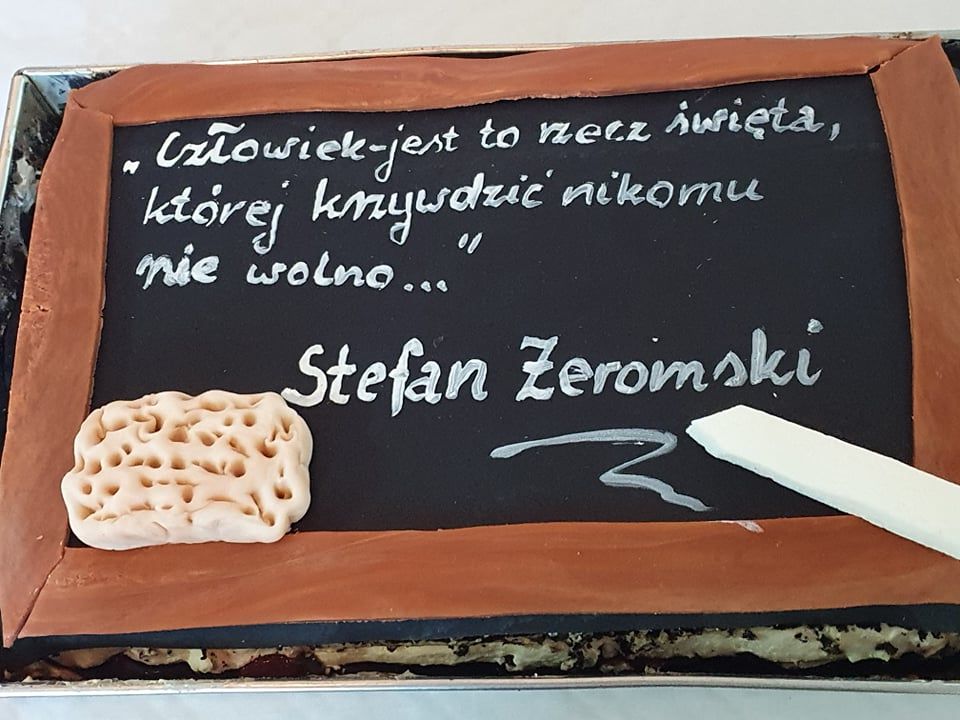 „Człowiek-jest to rzecz święta,
której krzywdzić nikomu
nie wolno..."
Stefan Żeromski